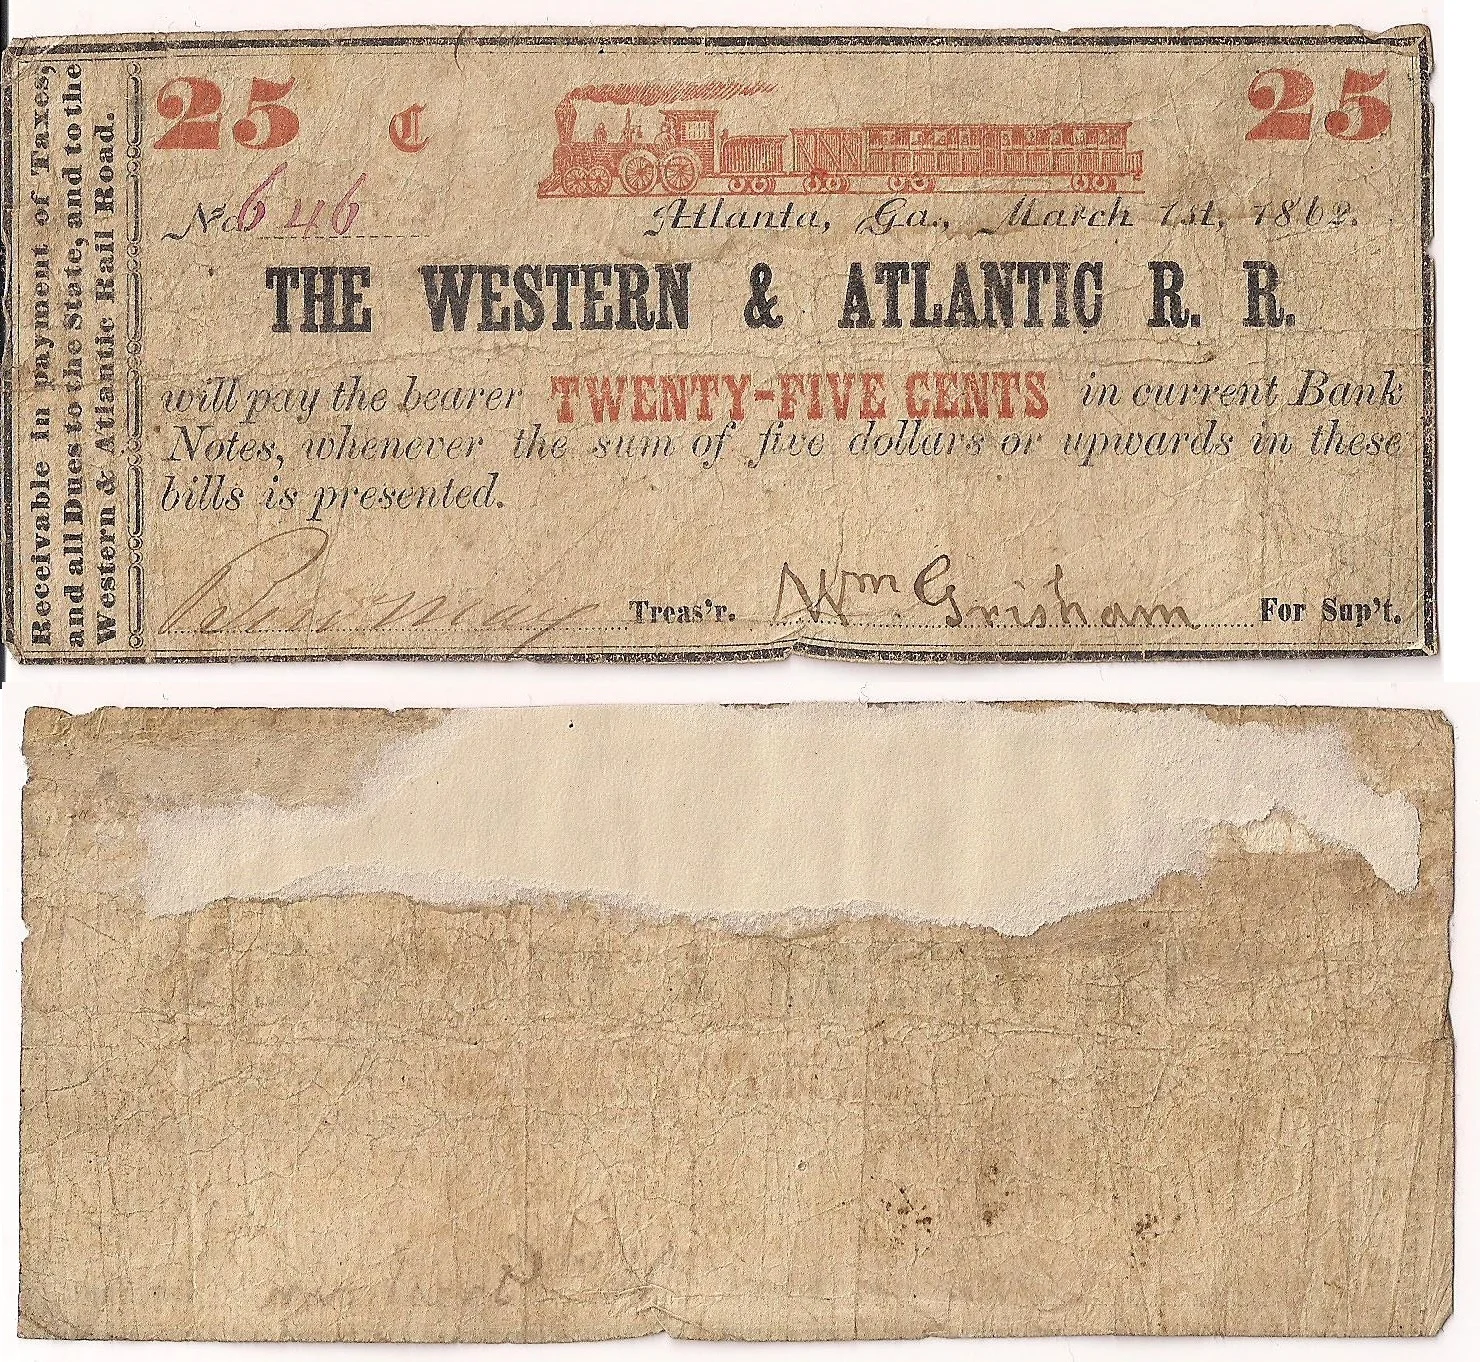 Receivable in payment of Taxes,
and all Dues to the State, and to the
Western & Atlantic Rail Road.
25 C 25
No 646
Atlanta, Ga., March 1st, 1862.
THE WESTERN & ATLANTIC R. R.
will pay the bearer TWENTY-FIVE CENTS in current Bank
Notes, whenever the sum of five dollars or upwards in these
bills is presented.
May Treas'r. Wm Grisham For Sup't.